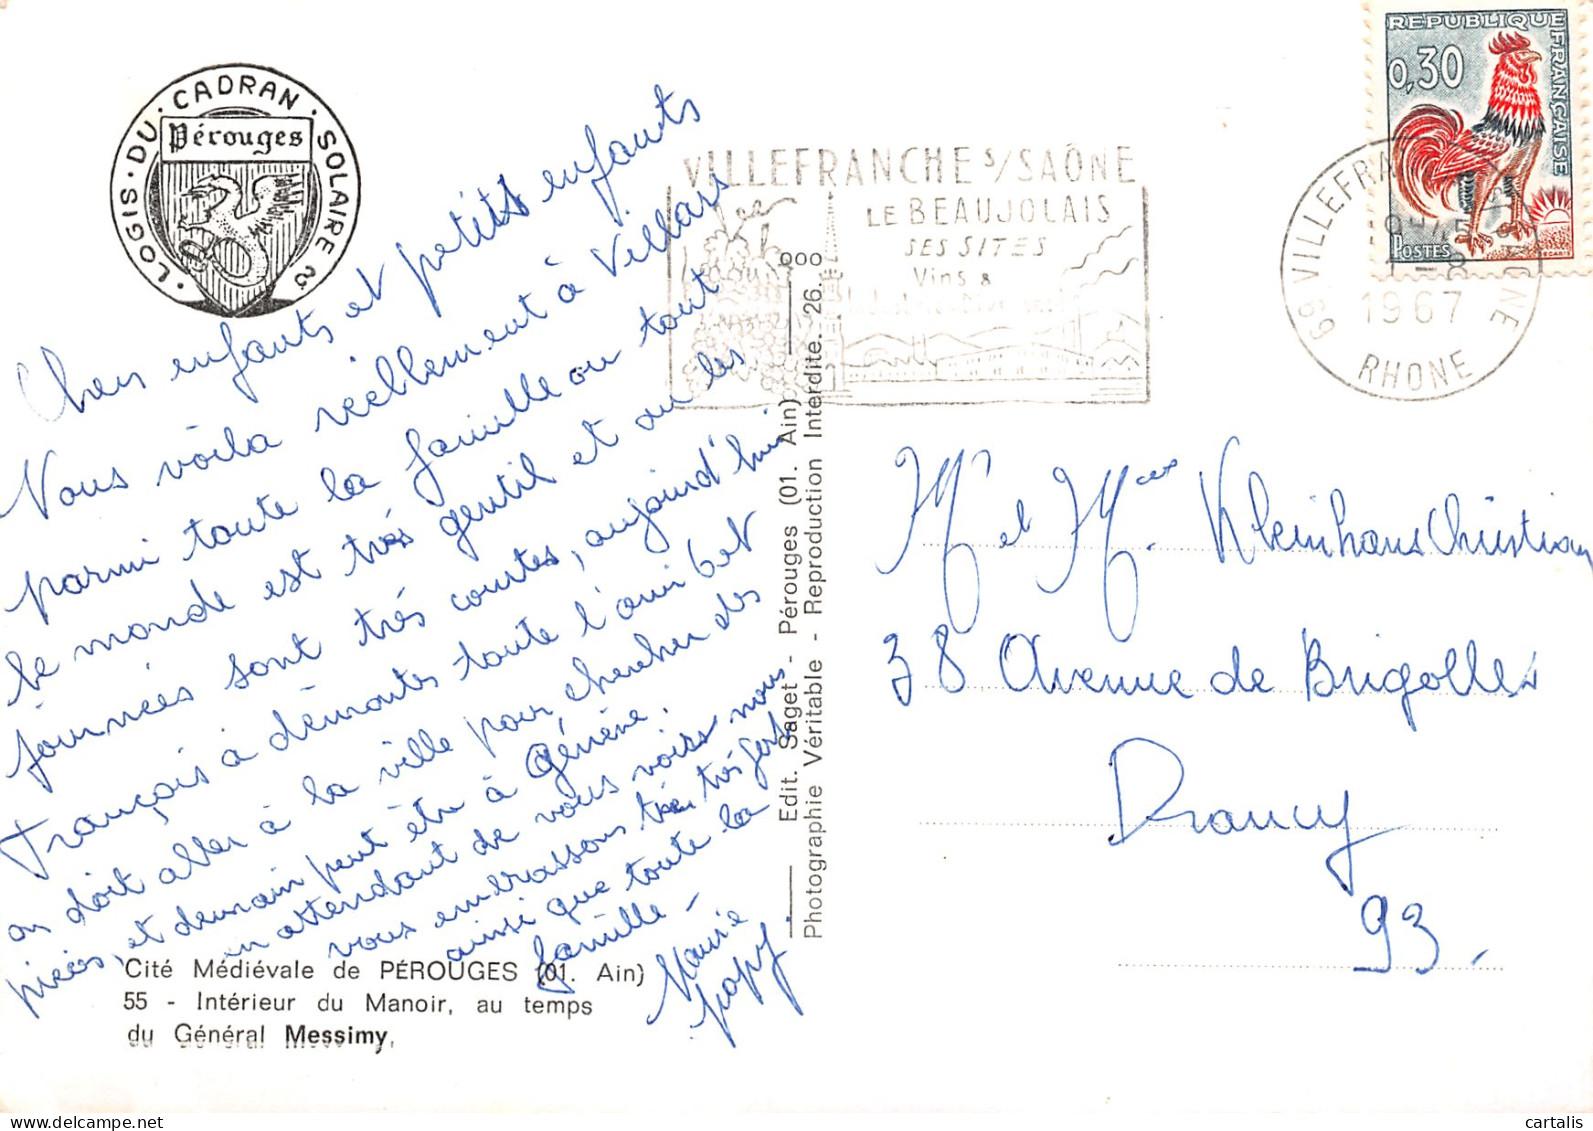 LOGIS · DU · CADRAN · SOLAIRE
Pérouges
Chers enfants et petits enfants
Nous voila réellement à Villars
parmi toute la famille ou tout
le monde est très gentil et ou les
journées sont très courtes, aujourd'hui
François à démontes toute l'ami 6 et
on doit aller à la ville pour chercher des
pièces, et demain peut être à Génève.
en attendant de vous voirs nous
vous embrassons très très fort
ainsi que toute la
famille -
Mamie
papy.
Cité Médiévale de PÉROUGES (01. Ain)
55 - Intérieur du Manoir, au temps
du Général Messimy.
Edit. Saget - Pérouges (01. Ain)
Photographie Véritable - Reproduction Interdite. 26.000
VILLEFRANCHE S/SAÔNE
LE BEAUJOLAIS
SES SITES
Vins &
69 VILLEFRANCHE S SAONE
1967
RHONE
REPUBLIQUE FRANÇAISE
0,30
POSTES
DECARIS
Mr et Mme. Kleinhans Christian
38 Avenue de Brigolles
Drancy
93.
cartalis